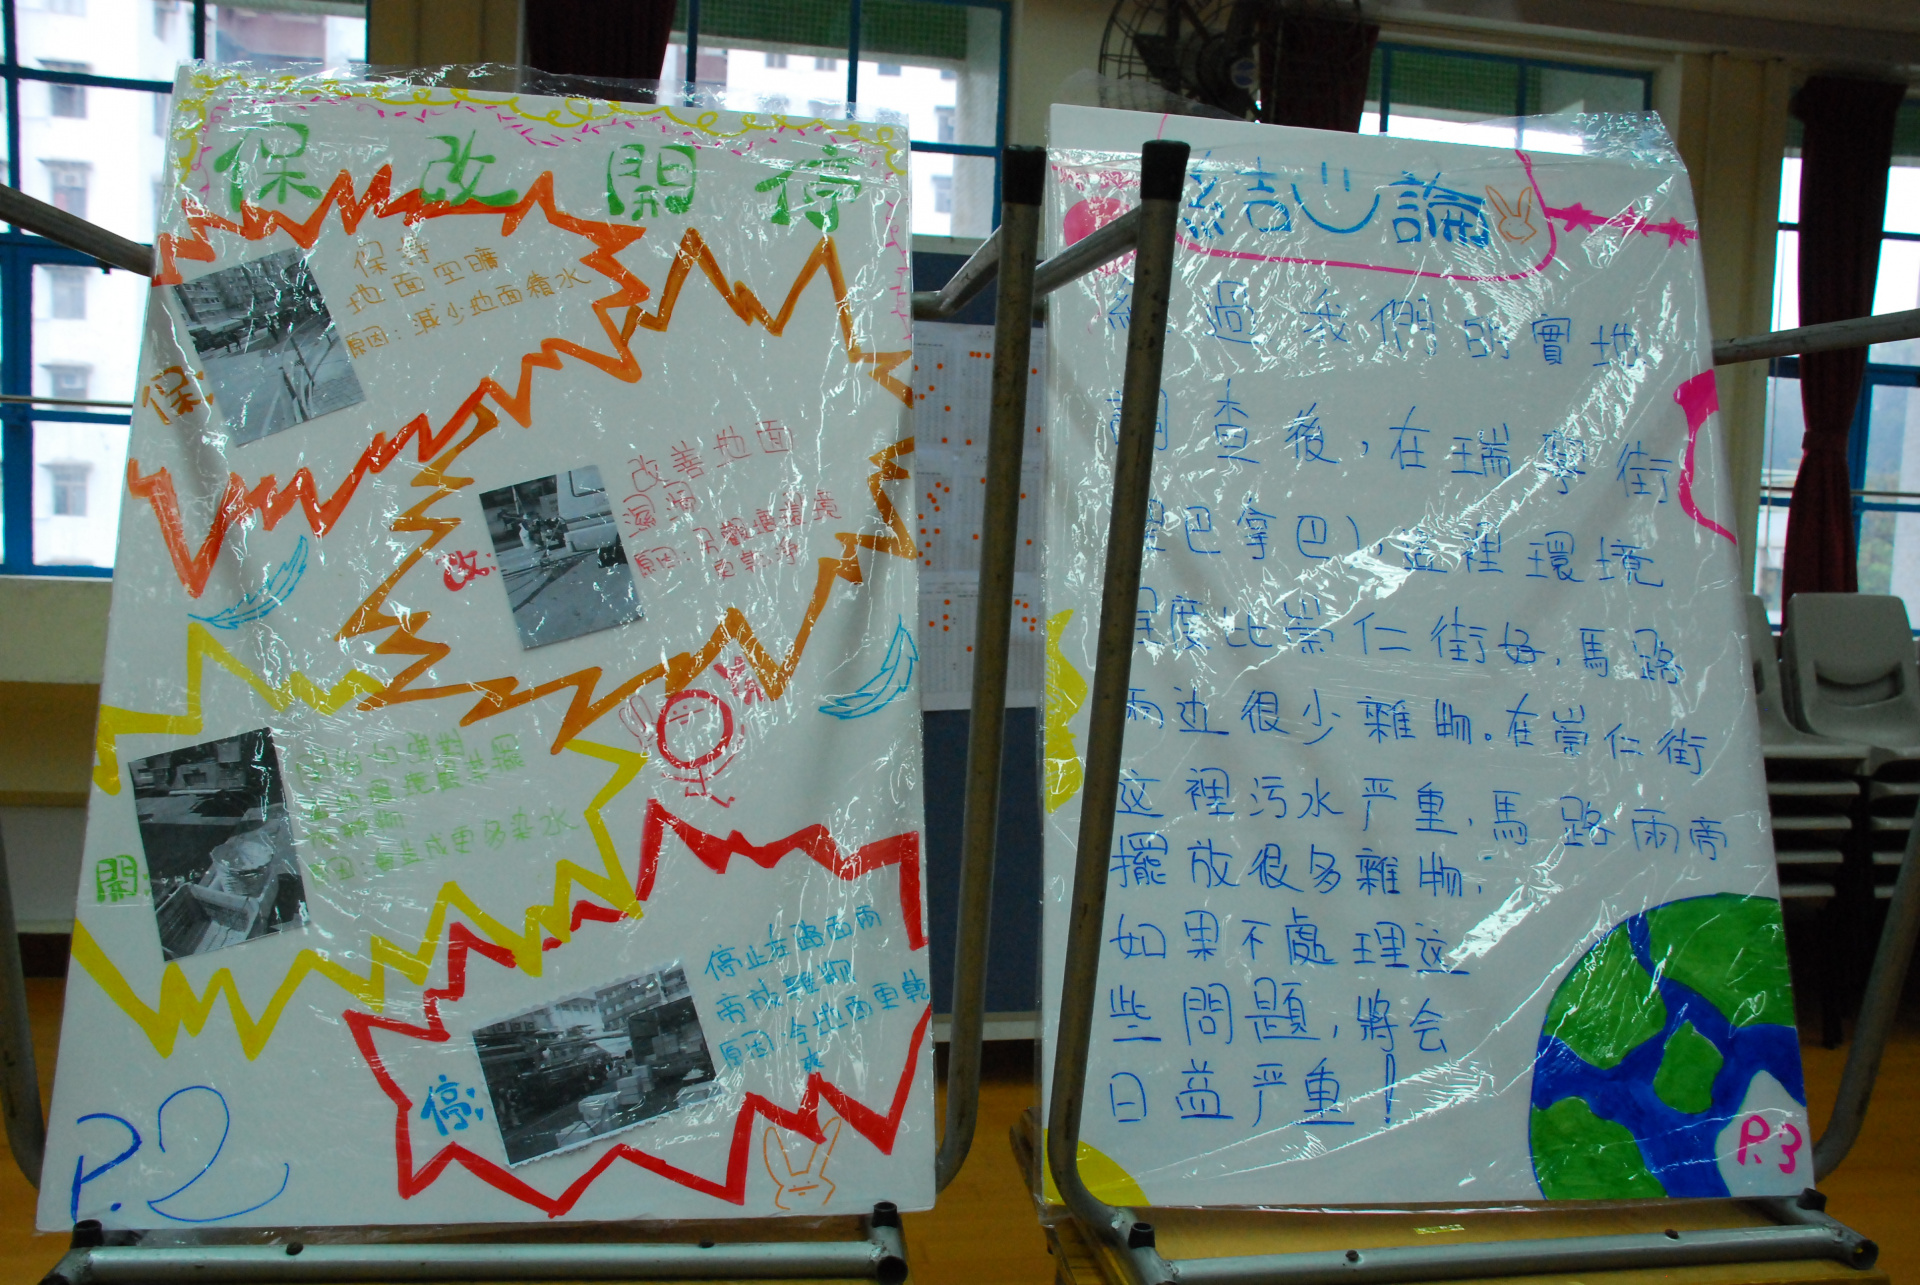 保 改 開 停
保:
保持
地面空曠
原因:減少地面積水
改:
改善地面
濕滑
原因:另觀塘環境
更乾淨
開:
原因:會造成更多染水
停:
停止在路面兩
旁放雜物
原因:令地面更乾
爽
P.2
總結心論
經過我們的實地
調查後,在瑞寧街
巴拿巴),這裡環境
程度比崇仁街好,馬路
兩边很少雜物。在崇仁街
这裡污水严重,馬路兩旁
擺放很多雜物,
如果不處理这
些問題,將会
日益严重!
P.3